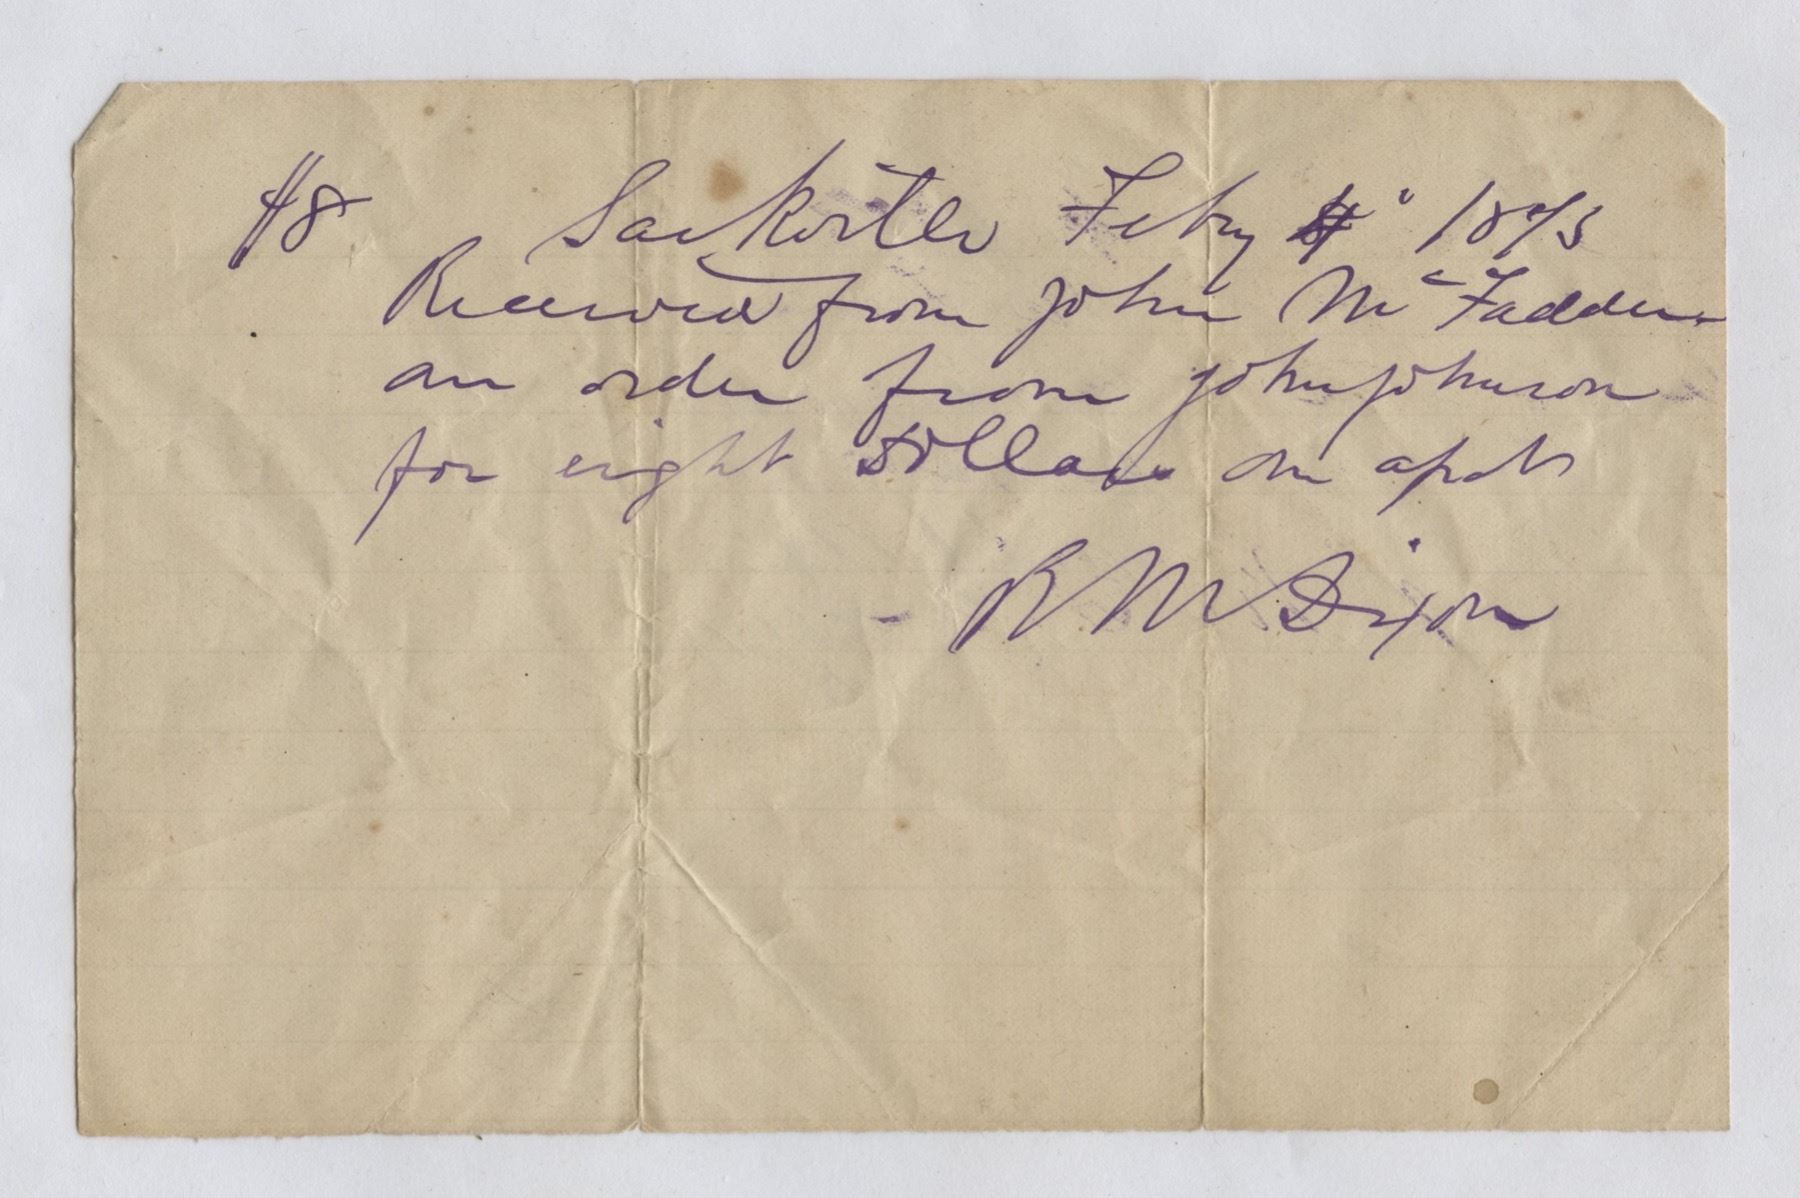 $8 Sackville Feby 4 1875
Received from John McFadden
an order from John Johnson
for eight Dollars on apct
R M Dixon